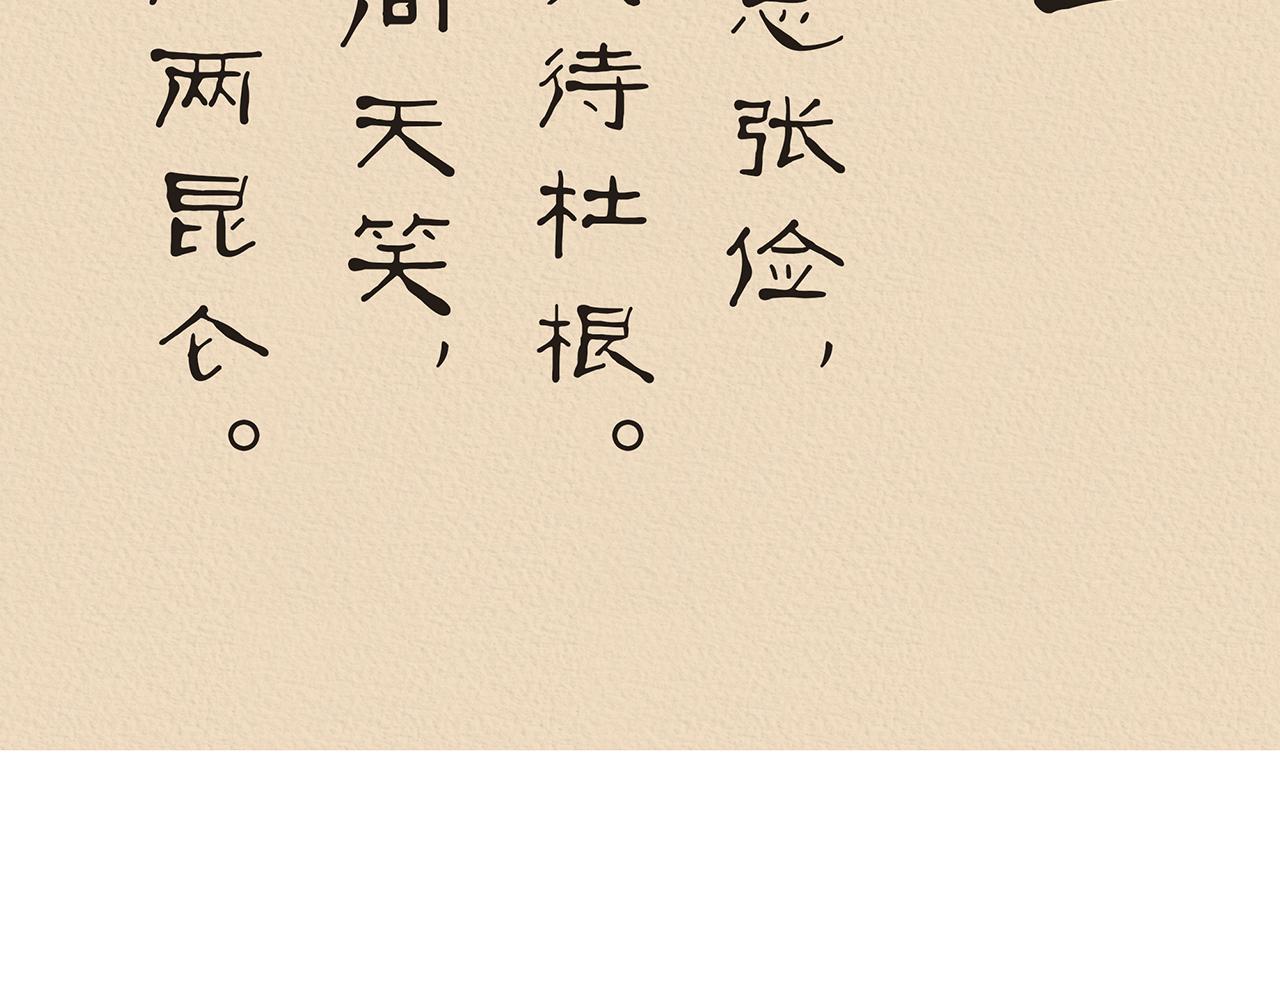 张俭，
待杜根。
天笑，
两昆仑。